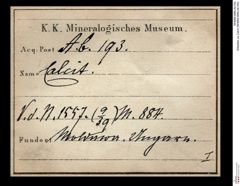 K. K. Mineralogisches Museum.
Acq. Post A.b. 193.
Name Calcit.
V.d.N. 1557. (9/39) M. 884.
Fundort Moldawa. Ungarn.
I